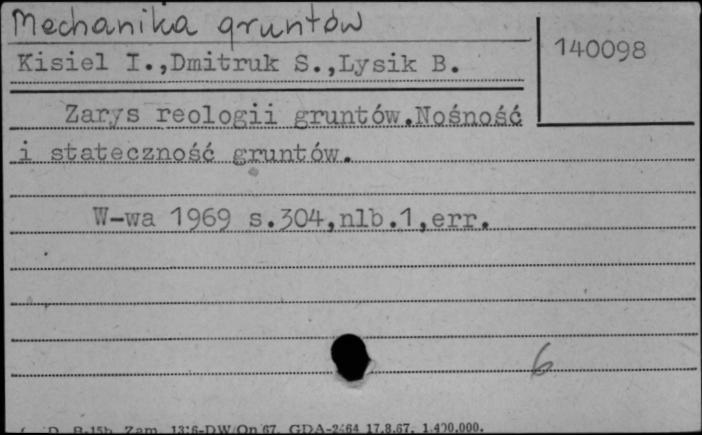 Mechanika gruntów
140098
Kisiel I.,Dmitruk S.,Lysik B.
Zarys reologii gruntów.Nośność
i stateczność gruntów.
W-wa 1969 s.304,nlb.1,err.
6
B-15b Zam. 1316-DW/On/67. GDA-2464 17.8.67. 1.400.000.